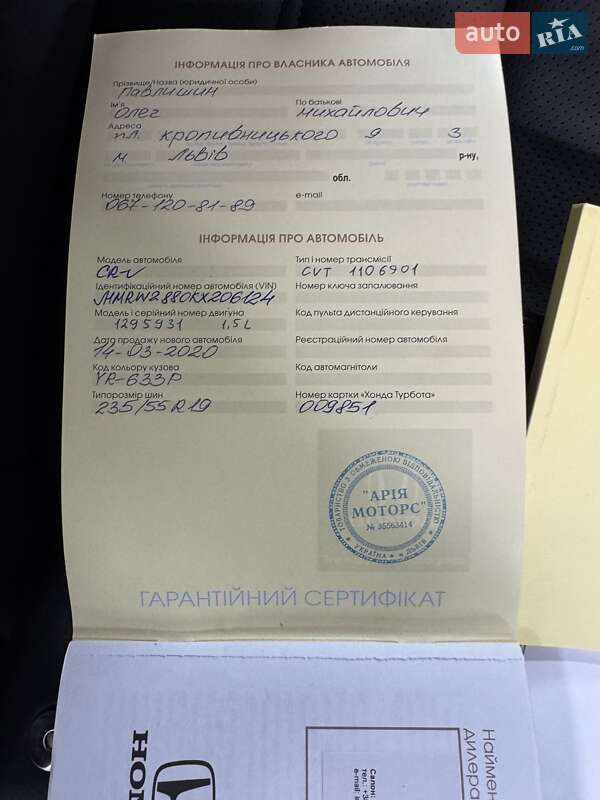 auto RIA.com
ІНФОРМАЦІЯ ПРО ВЛАСНИКА АВТОМОБІЛЯ
Прізвище/Назва (юридичної особи)
Павлишин
Ім'я По батькові
Олег Михайлович
Адреса
пл. Кропивницького 9 3
м Львів р-ну,
обл.
Номер телефону e-mail
067-120-81-89
ІНФОРМАЦІЯ ПРО АВТОМОБІЛЬ
Модель автомобіля Тип і номер трансмісії
CR-V CVT 1106901
Ідентифікаційний номер автомобіля (VIN) Номер ключа запалювання
JHMRW2880KX206124
Модель і серійний номер двигуна Код пульта дистанційного керування
1295931 1,5 L
Дата продажу нового автомобіля Реєстраційний номер автомобіля
14-03-2020
Код кольору кузова Код автомагнітоли
YR-633P
Типорозмір шин Номер картки «Хонда Турбота»
235/55 R19 009851
ТОВАРИСТВО З ОБМЕЖЕНОЮ ВІДПОВІДАЛЬНІСТЮ
"АРІЯ
МОТОРС"
№ 35563414
УКРАЇНА * м. ЛЬВІВ
ГАРАНТІЙНИЙ СЕРТИФІКАТ
HON
Салон:
тел.: +3
e-mail: i
Наймен
дилера